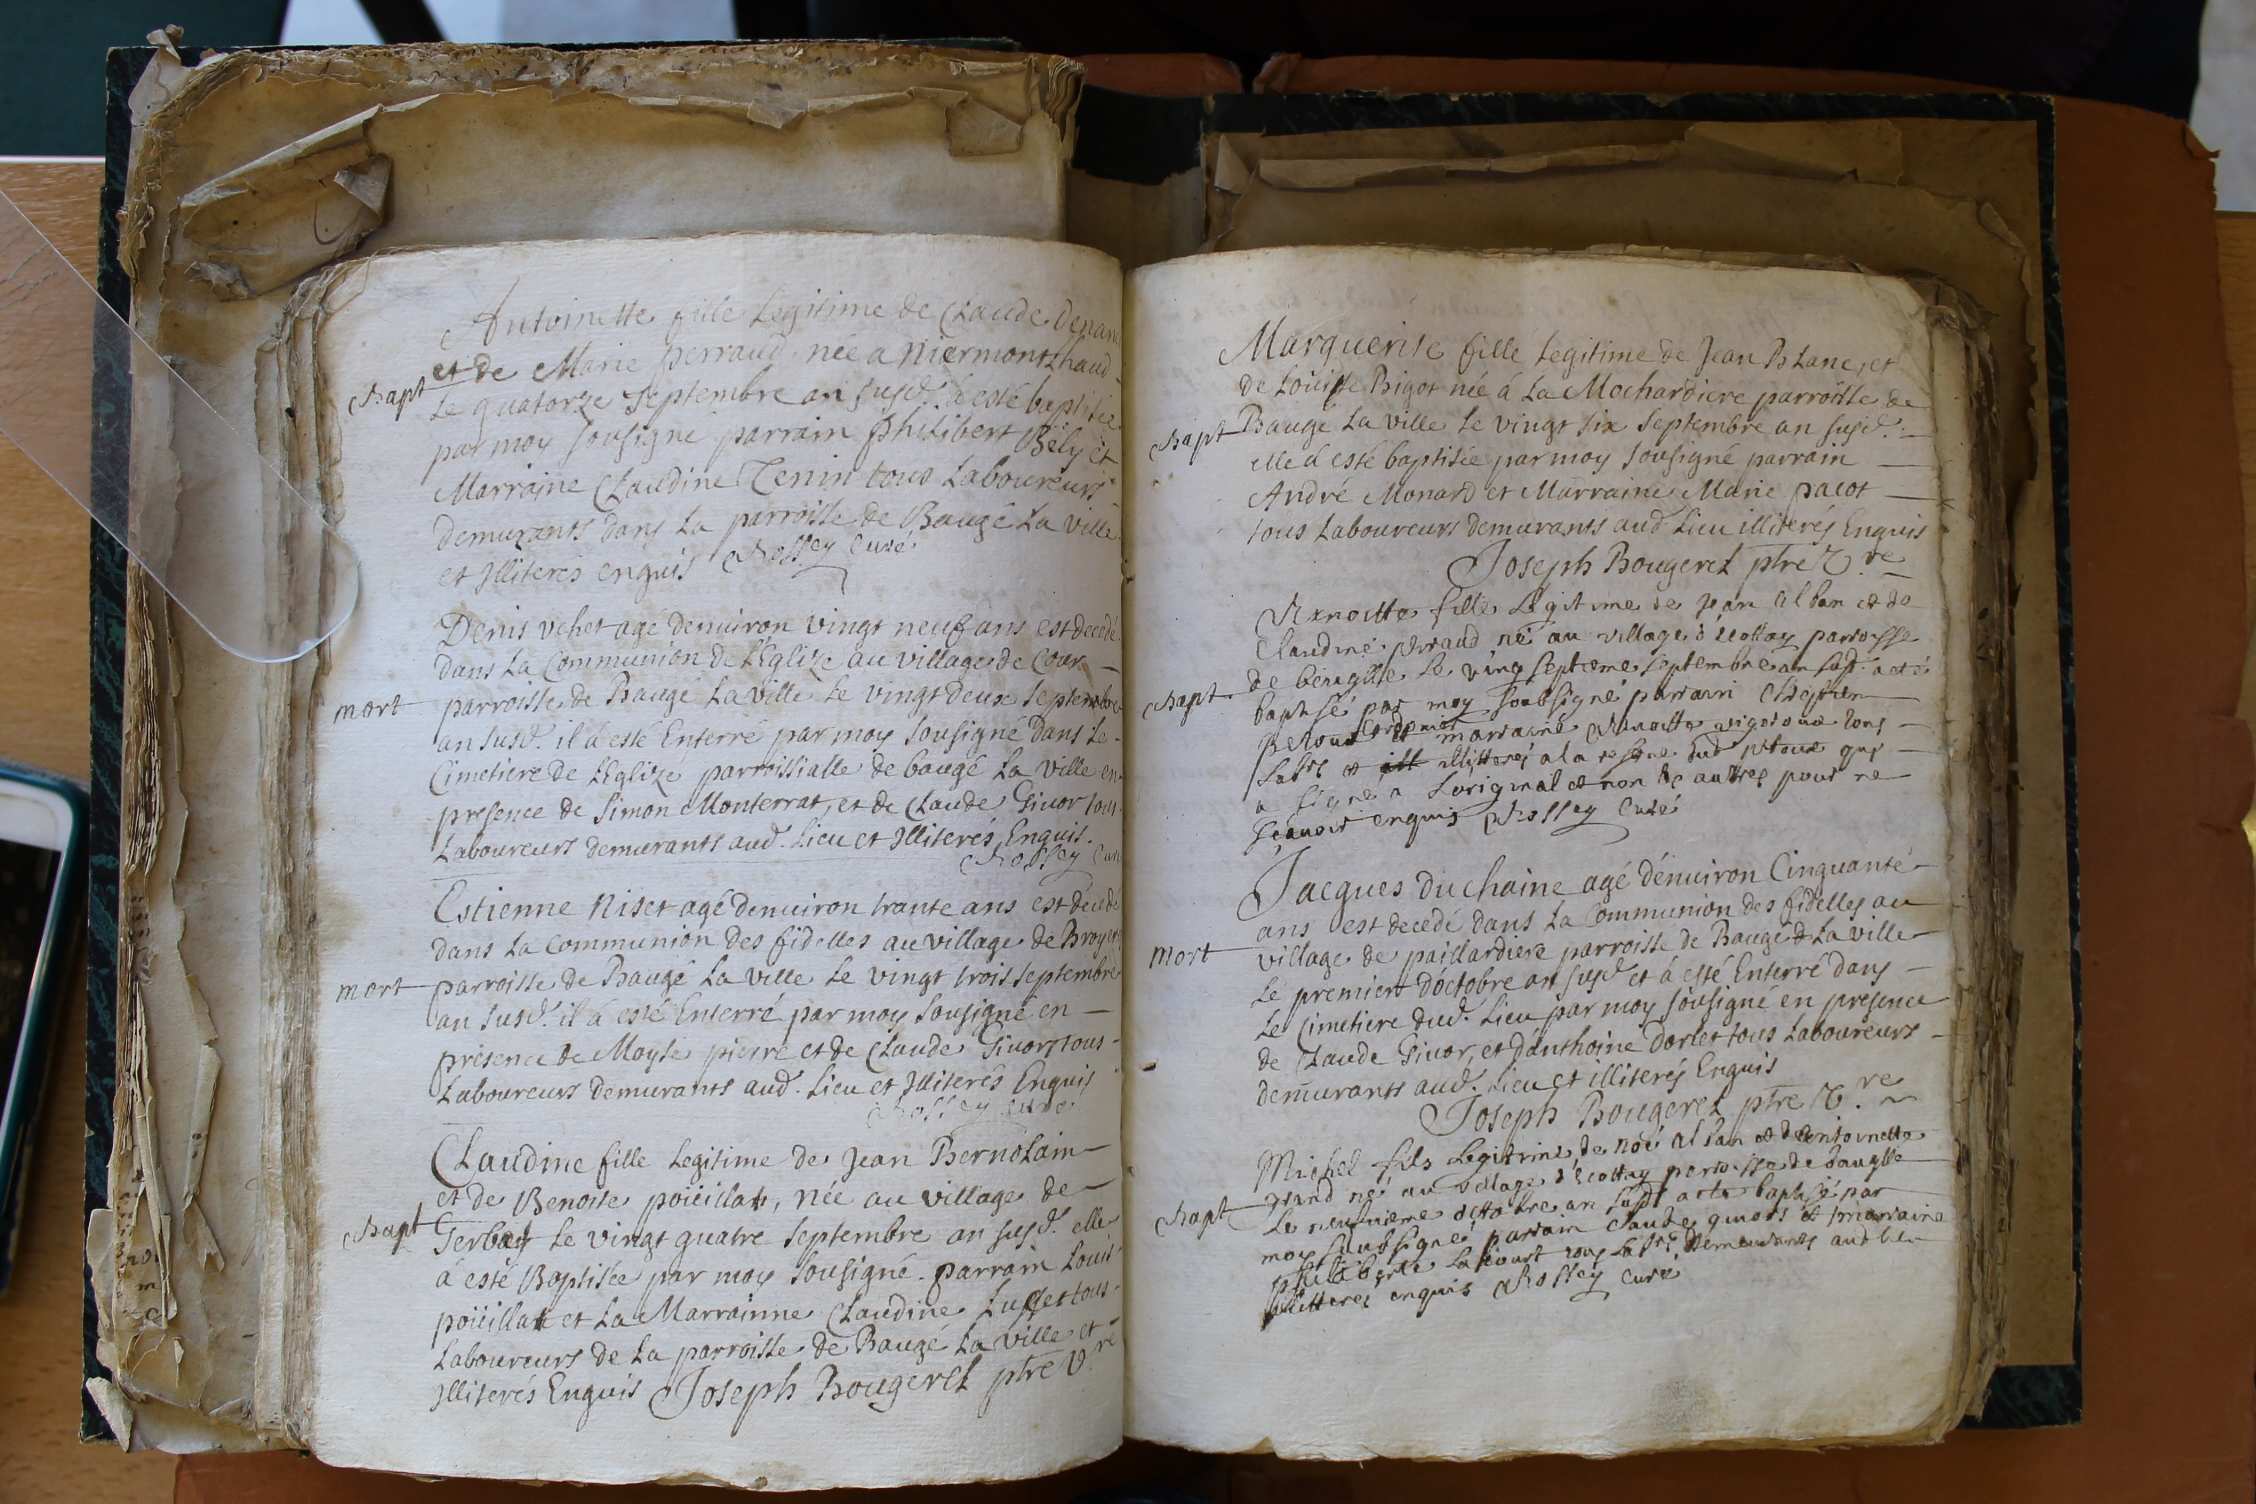 Antoinette fille Legitime de Claude Denan
et de Marie perraud née a Niermont Lhaud
Bapt
Le quatorze Septembre an susd. à esté baptisée
par moy sousigné parrain philibert Bély et
Marraine Claudine Tenin tous Laboureurs
demurants dans La parroisse de Baugé La ville
et Jlliterés enquis Rossey curé
Denis vehet agé denuiron vingt neuf ans est decedé
dans La Communion de L'Eglize au village de Cour
mort
parroisse de Baugé La ville Le vingt deux Septembre
an susd. il à esté Enterré par moy Sousigné Dans Le
Cimetiere de L'Eglize parroissialle de baugé La ville en
presence de Simon Monterrat, et de Claude Giuor tous
Laboureurs demurants aud. Lieu et Jlliterés Enquis.
Rossey Curé
Estienne Niset agé denuiron trante ans est décedé
dans La Communion des fidelles au village de Broyer
mort
parroisse de Baugé La ville Le vingt trois septembre
an susd. il à esté Enterré par moy Sousigné en
présence de Moyse pierre et de Claude Giuor tous
Laboureurs demurants aud. Lieu et Jlliterés Enquis
Rossey curé
Claudine fille Legitime de Jean Bernolain
et de Benoite poüillat, née au village de
Bapt
Gerbas Le vingt quatre septembre an susd. elle
à esté Baptisée par moy Sousigné. parrain Louis
poüillat et La Marrainne Claudine Luset tous
Laboureurs de La parroisse de Baugé La ville et
Jlliterés Enquis Joseph Bougeret ptre V.re
Marguerite fille Legitime de Jean Blanc, et
de Loüisse Bigot née à La Mochardiere parroisse de
Bapt
Baugé La ville Le vingt six septembre an susd.
elle à esté baptisée par moy sousigné parrain
André Monard et Marraine Marie pacot
tous Laboureurs demurants aud Lieu illiterés Enquis
Joseph Bougeret ptre V.re
fille Legitime de jean alban et de
Claudine perraud né au village d'écottay parroisse
Bapt
de Le ving septieme septembre an susd. a eté
baptisé par moy soubsigné parrain
Cordonier et marraine tous
Lab.rs et illitterés a la reserve dud
a signé a Loriginal et non Les autres pour ne
sçauoir enquis Rossey Curé
Jacques duchaine agé dénuiron Cinquante
ans est decedé dans La Communion des fidelles au
mort
village de paillardiere parroisse de Baugé La ville
Le premier d'octobre an susd et à esté Enterré dans
Le Cimetiere dud. Lieu par moy sousigné en presence
de Claude Giuor, et d'anthoine dorlet tous Laboureurs
demurants aud. Lieu et illiterés Enquis
Joseph Bougeret ptre V.re
Michel fils Legitime de noé alban et dantoinette
né au village d'écottay parroisse de
Bapt
Le neufuieme octobre an susd a eté baptisé par
moy soubsigné parrain Claude et marraine
philiberte Lacourt tous Lab.rs demeurants aud lieu
illitterés enquis Rossey curé